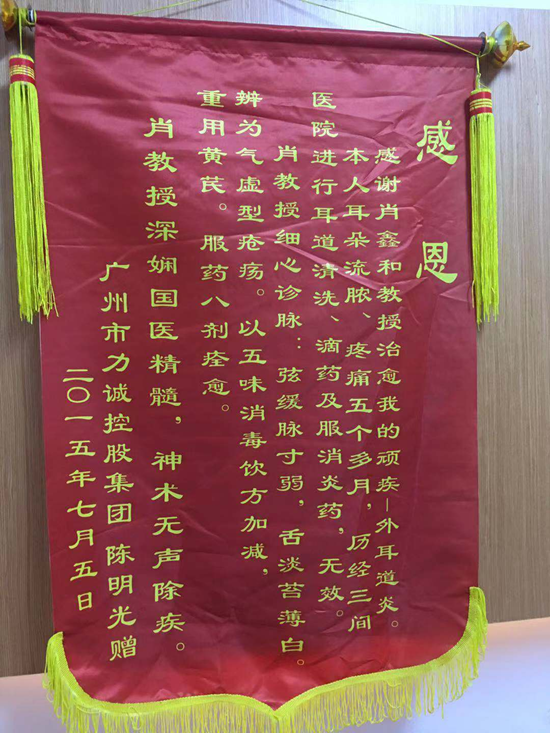 感恩
感谢肖鑫和教授治愈我的顽疾—外耳道炎。
本人耳朵流脓、疼痛五个多月，历经三间
医院进行耳道清洗、滴药及服消炎药，无效。
肖教授细心诊脉：弦缓脉寸弱，舌淡苔薄白。
辨为气虚型疮疡。以五味消毒饮方加减，
重用黄芪。服药八剂痊愈。
肖教授深娴国医精髓，神术无声除疾。
广州市力诚控股集团 陈明光赠
二〇一五年七月五日